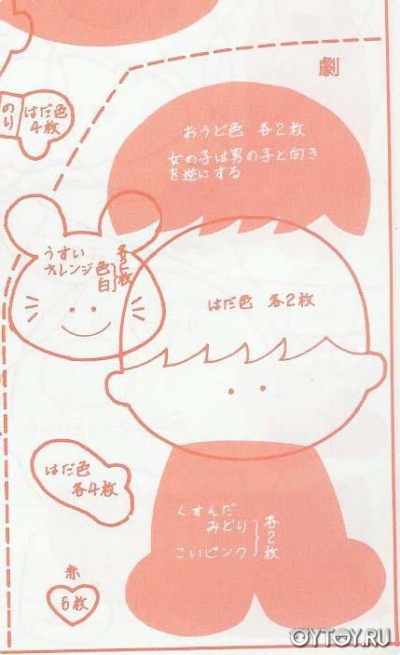 劇
のり
はだ色
4枚
おうど色 各2枚
女の子は男の子と向き
を逆にする
うすい
オレンジ色
白
各2枚
はだ色 各2枚
はだ色
各4枚
くすんだ
みどり
こいピンク
各2枚
赤
6枚
OYTOY.RU